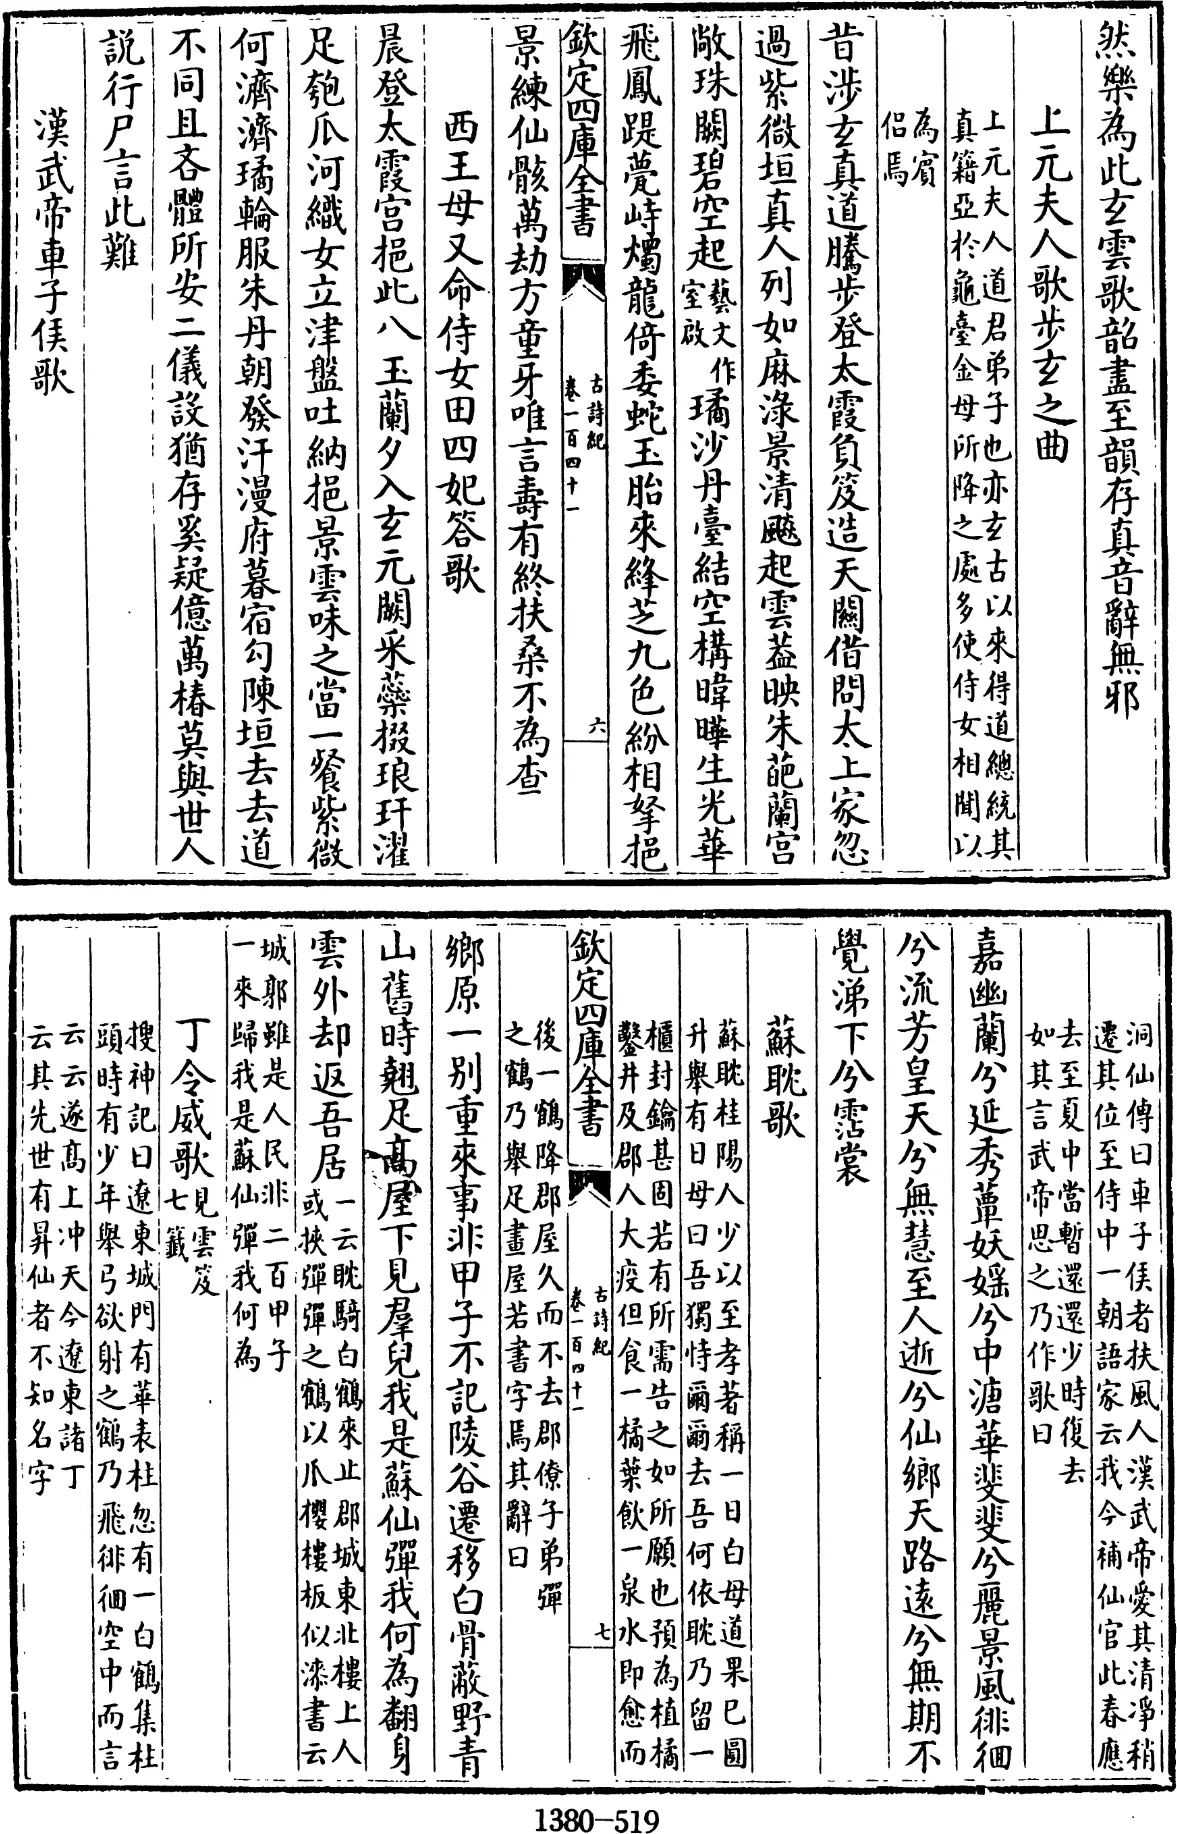 然樂為此玄雲歌韶盡至韻存真音辭無邪
上元夫人歌步玄之曲
上元夫人道君弟子也亦玄古以來得道總統其
真籍亞於龜臺金母所降之處多使侍女相聞以
為賓
侣焉
昔涉玄真道騰步登太霞負笈造天闗借問太上家忽
過紫微垣真人列如麻淥景清飇起雲葢映朱葩蘭宮
敞珠闕碧空起藝文作室啟璚沙丹臺結空構暐曄生光華
飛鳳踶甍峙燭龍倚委蛇玉胎來絳芝九色紛相挐挹
欽定四庫全書
古詩紀
卷一百四十一
六
景練仙骸萬劫方童牙唯言壽有終扶桑不為查
西王母又命侍女田四妃答歌
晨登太霞宮挹此八玉蘭夕入玄元闕采蘂掇琅玕濯
足匏瓜河織女立津盤吐納挹景雲味之當一餐紫微
何濟濟璚輪服朱丹朝發汗漫府暮宿勾陳垣去去道
不同且各體所安二儀設猶存奚疑億萬椿莫與世人
説行尸言此難
漢武帝車子侯歌
洞仙傳曰車子侯者扶風人漢武帝愛其清凈稍
遷其位至侍中一朝語家云我今補仙官此春應
去至夏中當暫還還少時復去
如其言武帝思之乃作歌曰
嘉幽蘭兮延秀蕈妖婬兮中溏華斐斐兮麗景風徘徊
兮流芳皇天兮無慧至人逝兮仙鄉天路遠兮無期不
覺涕下兮霑裳
蘇耽歌
蘇耽桂陽人少以至孝著稱一日白母道果已圓
升舉有日母曰吾獨恃爾爾去吾何依耽乃留一
櫃封鑰甚固若有所需告之如所願也預為植橘
鑿井及郡人大疫但食一橘葉飲一泉水即愈而
欽定四庫全書
古詩紀
卷一百四十一
七
後一鶴降郡屋久而不去郡僚子弟彈
之鶴乃舉足畫屋若書字焉其辭曰
鄉原一别重來事非甲子不記陵谷遷移白骨蔽野青
山舊時翹足高屋下見羣兒我是蘇仙彈我何為翻身
雲外却返吾居一云耽騎白鶴來止郡城東北樓上人
或挾彈彈之鶴以爪櫻樓板似漆書云
城郭雖是人民非二百甲子
一來歸我是蘇仙彈我何為
丁令威歌見雲笈七籤
搜神記曰遼東城門有華表柱忽有一白鶴集柱
頭時有少年舉弓欲射之鶴乃飛徘徊空中而言
云云遂高上冲天今遼東諸丁
云其先世有昇仙者不知名字
1380-519